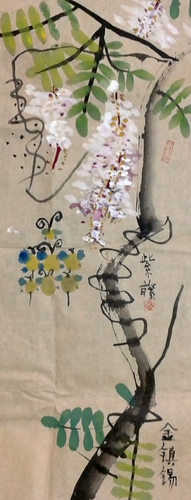 紫藤
金鎮錫